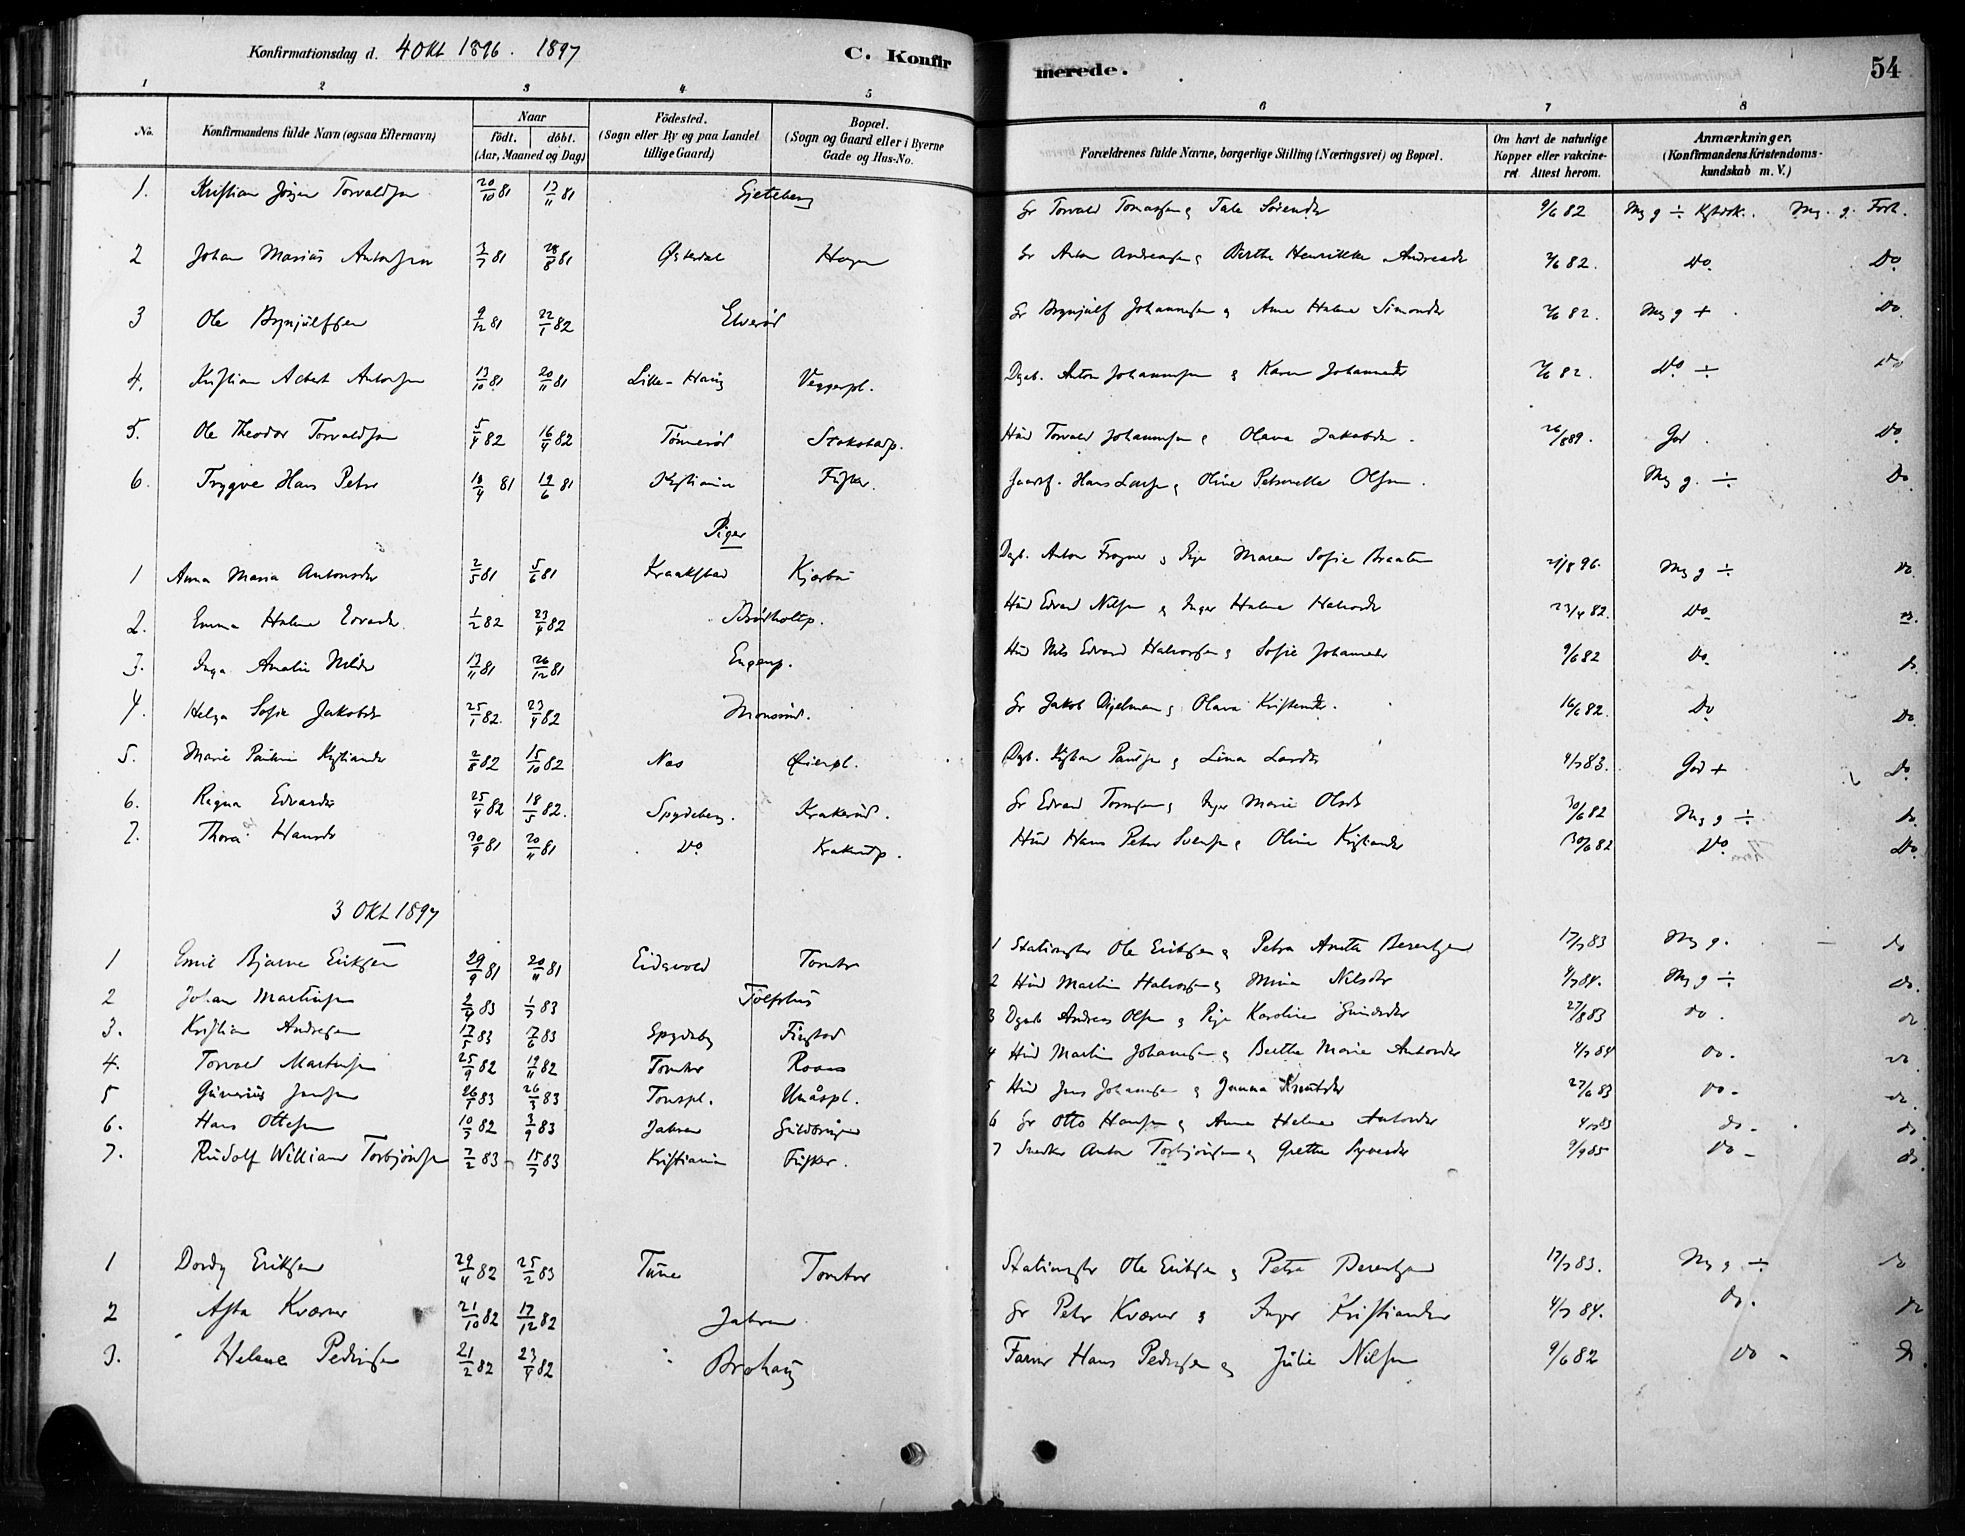 Konfirmationsdag d. 4 Okt 1896. 1897
C. Konfirmerede.
54
1 2 3 4 5 6 7 8
No.
Konfirmandens fulde Navn (ogsaa Efternavn)
Naar
födt. döbt.
(Aar, Maaned og Dag)
Födested.
(Sogn eller By og paa Landet
tillige Gaard)
Bopæl.
(Sogn og Gaard eller i Byerne
Gade og Hus-No.
Forældrenes fulde Navne, borgerlige Stilling (Næringsvei) og Bopæl.
Om havt de naturlige
Kopper eller vakcine-
ret. Attest herom.
Anmærkninger.
(Konfirmandens Kristendoms-
kundskab m. V.)
1. Kristian Jörgen Torvaldsen 20/10 81 13/11 81 Gjeteberg Gr Torvald Tomassen og Tale Sörensdr 9/6 82 Mg g ÷ Mg. g. Forh.
2 Johan Marius Antonsen 3/7 81 28/8 81 Østedal Hagen Gr Anton Andreassen og Berthe Henrikke Andreasdr 2/6 82. Do. Do
3 Ole Brynjülfsen 9/12 81 22/1 82 Elveröd Gr Brynjülf Johannesen og Anne Helene Simonsdr 2/6 82. Mg g + Do.
4. Kristian Albert Antonsen 13/10 81 20/11 81 Lille-Haug Veggerpl. Dgab. Anton Johannesen og Karen Johannesdr 2/6 82. Do ÷ Do
5. Ole Theodor Torvaldsen 5/4 82 16/4 82 Tömmeröd Hüd Torvald Johannesen og Olava Jakobsdr. 26/8 89. God. Do
6. Trygve Hans Peter 10/4 81 19/6 81 Kristiania Fisker. Hans Larsen og Oline Petronelle Olsen. Mg g. ÷ Do
Piger
1 Anna Maria Antonsdr 2/5 81 5/6 81 Kraakstad Kjærbü Dagb. Anton Frogner og Pige Maren Sofie Braaten 21/8 96. Mg g ÷ Do.
2. Emma Helene Edvardsdr. 1/2 82 23/4 82 Brödholtp. Hüd Edvard Nilsen og Inger Helene Halvorsdr 23/4 82. Do. Do.
3. Inga Amalie Nilsdr 13/11 81 26/12 81 Engenp. Hüd Nils Edvard Halvorsen og Sofie Johannesdr 9/6 82 Do. do
4. Helga Sofie Jakobsdr 25/1 82. 23/4 82 Monsrüd. Gr Jakob Digelman og Olava Kristensdr. 16/6 82. Do Do.
5. Marie Pauline Kristiansdr 2/8 82 15/10 82 Nes Øierpl. Dgb. Kristian Paulsen og Lina Larsdr 4/7 83. God + Do
6. Ragna Edvardsdr 25/4 82 18/5 82. Spydeberg. Krakeröd. Gr Edvard Tomesen og Inger Marie Olsdr 30/6 82 Mg g ÷ Do.
7. Thora Hansdr 30/9 81 20/11 81 Do Krakeröp. Hüd Hans Peter Svensen og Oline Kristiansdr 30/6 82 Do Do.
3 Okt 1897
1 Emil Bjarne Eriksen 29/9 81 20/11 81 Eidsvold Tomter 1 Stationsmstr Ole Eriksen og Petra Anette Berentzen 17/7 83 Mg g. do
2 Johan Martinsen 2/4 83 1/7 83 Tolfshus 2 Hüd Martin Halvorsen og Mina Nilsdtr 4/7 84. Mg g ÷ do.
3. Kristian Andresen 17/5 83 17/6 83 Spydeberg Fingstad 3 Dgarb Andreas Olsen og Pige Karoline Gündersdr 27/8 83 do. do
4. Torvald Martinsen 25/9 82 19/11 82 Tomter Roaas 4 Hüd Martin Johannsen og Berthe Marie Antonsdr 4/7 84 Do. do
5 Günerius Jensen 26/1 83 26/3 83 Tomspl. Unåspl. 5 Hüd Jens Johannsen og Janna Knutsdr 27/6 83 Do. do.
6. Hans Ottesen 10/7 82 3/9 83 Jahren Güldbringen 6 Gr Otto Hansen og Anne Helene Antonsdr 4/7 83 do. do.
7. Rüdolf William Torbjörnsen 7/2 83 15/7 83 Kristiania Fisker. 7 Snedker Anton Torbjörnsen og Grethe Syversdr 9/9 85 Do do.
1 Dordy Eriksen 29/11 82 25/2 83 Tüne Tomter Stationsmstr Ole Eriksen og Petra Berentzen 17/7 83. Mg g. ÷ do
2 Asta Kværner 21/10 82 17/12 82 Jahren Gr Peter Kværner og Inger Kristiansdr 4/7 84. do. do
3. Helene Pedersen 21/2 82 23/4 82 Brohaüg Farver Hans Pedersen og Jülie Nilsen 9/6 82 Do do